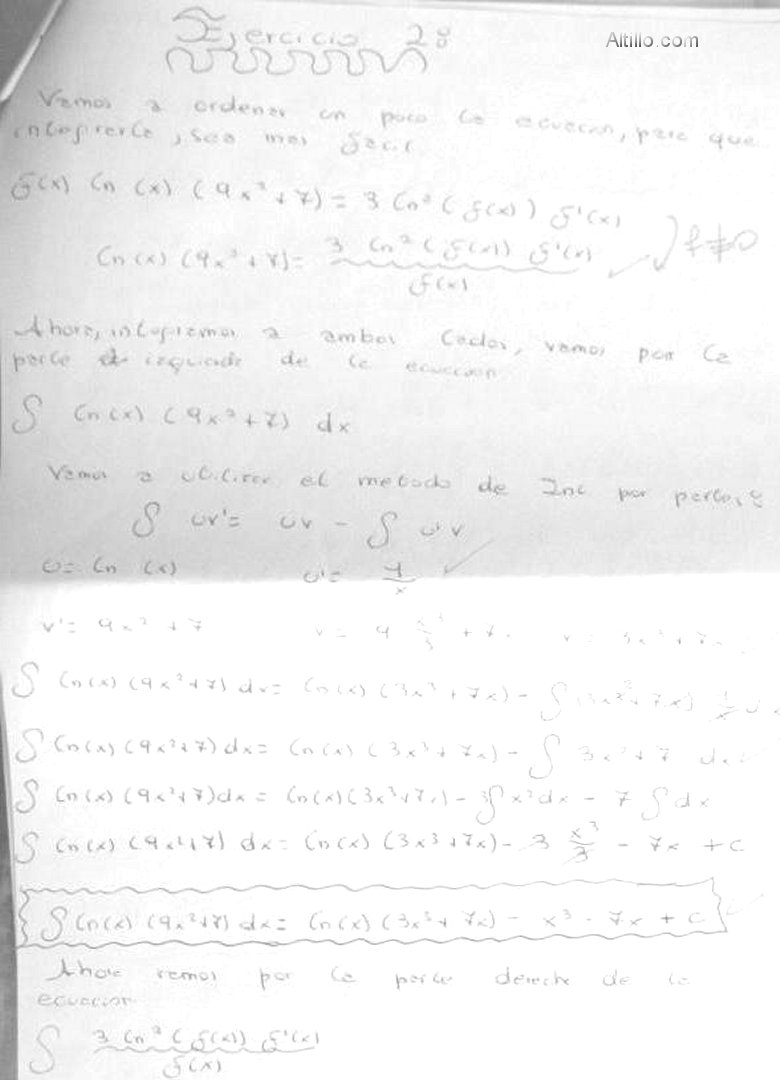 Ejercicio 2:
Altillo.com
Vamos a ordenar un poco la ecuacion, para que
integrarla, sea mas facil
f(x) ln (x) (9x² + 7) = 3 ln² (f(x)) f'(x)
ln (x) (9x² + 7) = 3 ln² (f(x)) f'(x) / f(x)
f ≠ 0
Ahora, integremos a ambos lados, vamos por la
parte izquierda de la ecuacion
∫ ln (x) (9x² + 7) dx
Vamos a utilizar el metodo de Int por partes:
∫ uv' = uv - ∫ u'v
u = ln (x) u' = 1/x
v' = 9x² + 7 v = 9 x³/3 + 7x v = 3x³ + 7x
∫ ln(x) (9x² + 7) dx = ln(x) (3x³ + 7x) - ∫ (3x³ + 7x) 1/x dx
∫ ln(x) (9x² + 7) dx = ln(x) (3x³ + 7x) - ∫ 3x² + 7 dx
∫ ln(x) (9x² + 7) dx = ln(x) (3x³ + 7x) - 3∫ x² dx - 7 ∫ dx
∫ ln(x) (9x² + 7) dx = ln(x) (3x³ + 7x) - 3 x³/3 - 7x + c
∫ ln(x) (9x² + 7) dx = ln(x) (3x³ + 7x) - x³ - 7x + c
Ahora vamos por la parte derecha de la
ecuacion
∫ 3 ln² (f(x)) f'(x) / f(x)